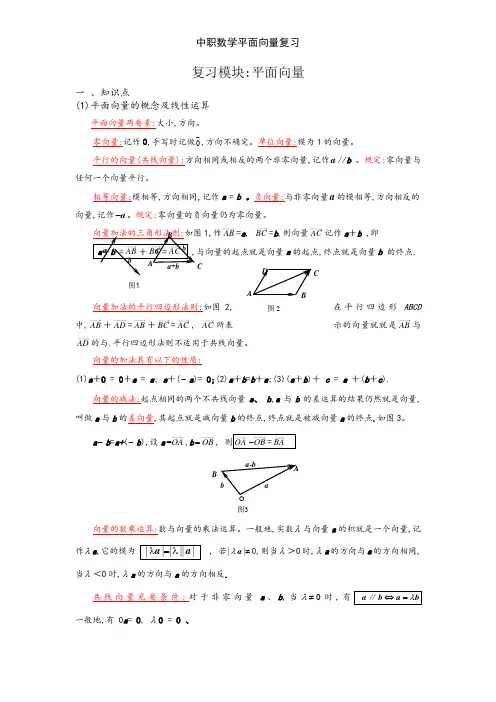 中职数学平面向量复习
复习模块:平面向量
一 、知识点
(1)平面向量的概念及线性运算
平面向量两要素:大小,方向。
零向量:记作0,手写时记做0,方向不确定。单位向量:模为1的向量。
平行的向量(共线向量):方向相同或相反的两个非零向量,记作a//b 。规定:零向量与
任何一个向量平行。
相等向量:模相等,方向相同,记作a = b 。负向量:与非零向量a的模相等,方向相反的
向量,记作−a。规定:零向量的负向量仍为零向量。
向量加法的三角形法则:如图1,作AB=a, BC=b,则向量AC记作a+b ,即
a+b = AB + BC = AC ,与向量的起点就是向量a的起点,终点就是向量b 的终点.
a
b
A
a+b
C
图1
D
C
A
B
图2
向量加法的平行四边形法则:如图 2, 在平行四边形 ABCD
中,AB + AD = AB + BC = AC , AC所表 示的向量就就是AB与
AD的与.平行四边形法则不适用于共线向量。
向量的加法具有以下的性质:
(1)a+0 = 0+a = a; a+(− a)= 0;(2)a+b=b+a;(3)(a+b)+ c = a +(b+c).
向量的减法:起点相同的两个不共线向量 a、 b,a 与 b 的差运算的结果仍然就是向量,
叫做a与b的差向量,其起点就是减向量b的终点,终点就是被减向量a的终点,如图3。
a− b=a+(− b),设a=OA,b=OB, 则OA −OB = BA
a-b
A
B
b
a
O
图3
向量的数乘运算:数与向量的乘法运算。一般地,实数λ与向量a的积就是一个向量,记
作λa,它的模为 |λa|=|λ||a| , 若|λa|≠0,则当λ>0时,λa的方向与a的方向相同,
当λ<0时,λa的方向与a的方向相反.
共线向量充要条件:对于非零向量 a、b,当λ≠0 时,有 a // b ⇔ a = λb
一般地,有 0a= 0, λ0 = 0 、